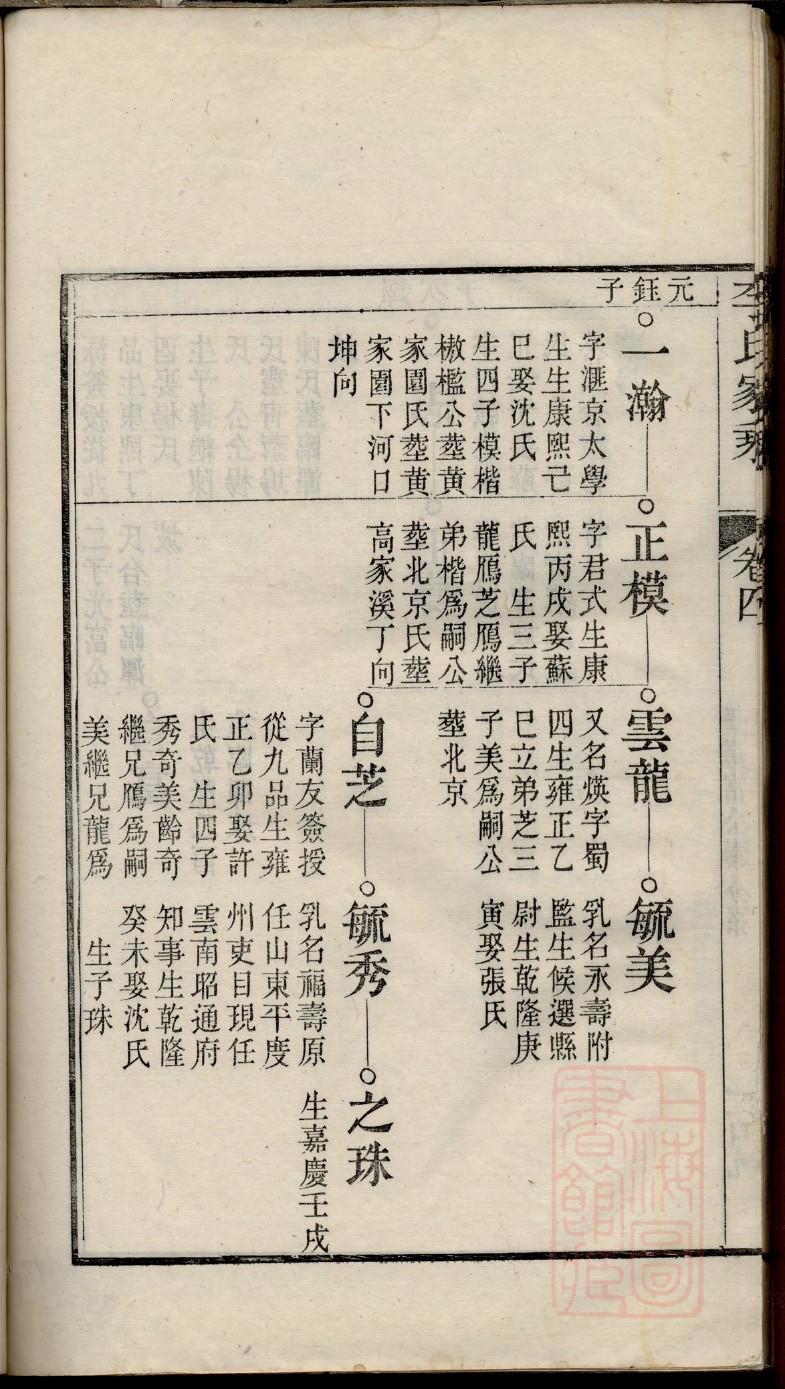 氏家乘
卷四
元鈺子
一瀚
字滙京太學
生生康熙己
巳娶沈氏
生四子模楷
楲檻公塟黃
家園氏塟黃
家園下河口
坤向
正模
字君式生康
熙丙戌娶蘇
氏 生三子
龍鴈芝鴈繼
弟楷爲嗣公
塟北京氏塟
高家溪丁向
雲龍
又名煐字蜀
四生雍正乙
巳立弟芝三
子美爲嗣公
塟北京
毓美
乳名永壽附
監生候選縣
尉生乾隆庚
寅娶張氏
自芝
字蘭友簽授
從九品生雍
正乙卯娶許
氏 生四子
秀奇美齡奇
繼兄鴈爲嗣
美繼兄龍爲
毓秀
乳名福壽原
任山東平度
州吏目現任
雲南昭通府
知事生乾隆
癸未娶沈氏
生子珠
之珠
生嘉慶壬戌
上海圖
書館藏